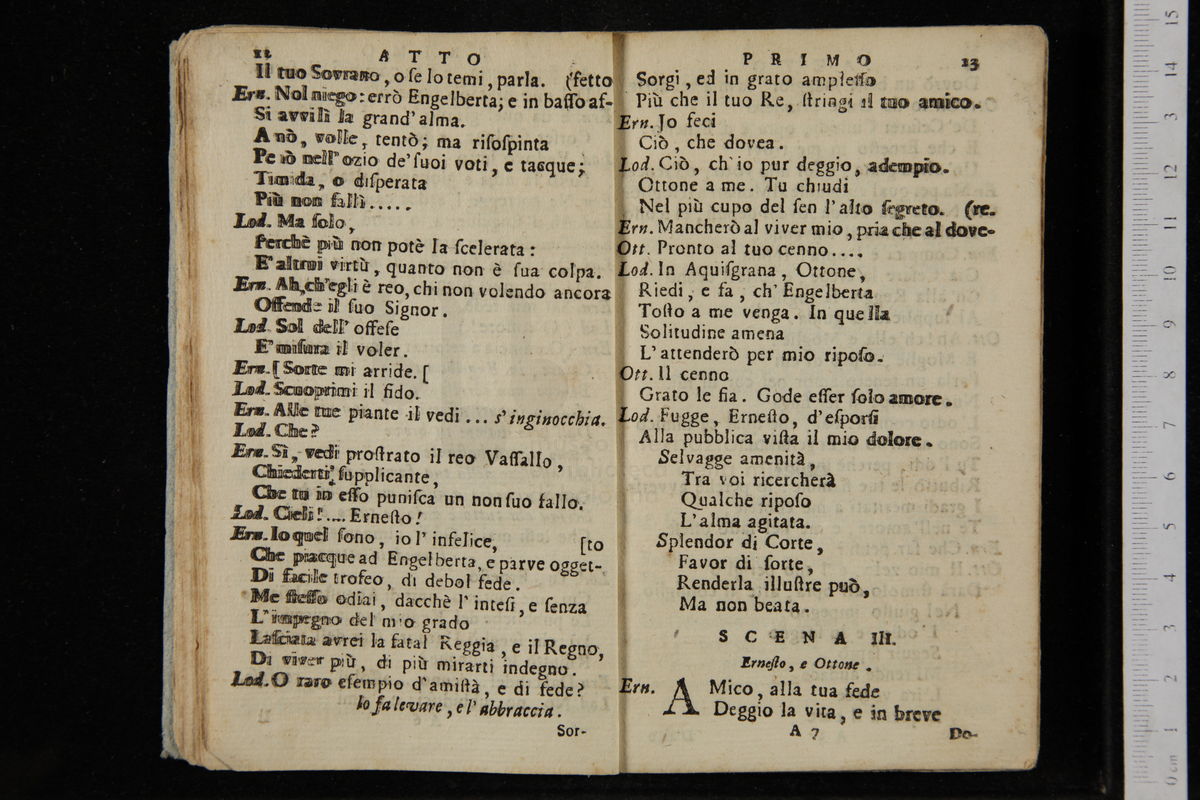 12 ATTO
Il tuo Sovrano, o ſe lo temi, parla. (fetto
Ern. Nol niego: errò Engelberta; e in baſſo af-
Si avvilì la grand' alma.
A nò, volle, tentò; ma riſoſpinta
Pe iò nell' ozio de' ſuoi voti, e tacque;
Timida, o diſperata
Più non fallì.....
Lod. Ma ſolo,
Perchè più non potè la ſcelerata:
E' altrui virtù, quanto non è ſua colpa.
Ern. Ah, ch'egli è reo, chi non volendo ancora
Offende il ſuo Signor.
Lod. Sol dell' offeſe
E' miſura il voler.
Ern. [ Sorte mi arride. [
Lod. Scuoprimi il fido.
Ern. Alle tue piante il vedi ... s'inginocchia.
Lod. Che?
Ern. Sì, vedi proſtrato il reo Vaſſallo,
Chiederti, ſupplicante,
Che tu in eſſo puniſca un non ſuo fallo.
Lod. Cieli!.... Erneſto!
Ern. Io quel ſono, io l' infelice, [to
Che piacque ad Engelberta, e parve ogget-
Di facile trofeo, di debol fede.
Me ſteſſo odiai, dacchè l' inteſi, e ſenza
L' impegno del mio grado
Laſciata avrei la fatal Reggia, e il Regno,
Di viver più, di più mirarti indegno.
Lod. O raro eſempio d'amiſtà, e di fede?
lo fa levare, e l' abbraccia.
Sor-
PRIMO 13
Sorgi, ed in grato ampleſſo
Più che il tuo Re, ſtringi il tuo amico.
Ern. Jo feci
Ciò, che dovea.
Lod. Ciò, ch' io pur deggio, adempio.
Ottone a me. Tu chiudi
Nel più cupo del ſen l' alto ſegreto. (re.
Ern. Mancherò al viver mio, pria che al dove-
Ott. Pronto al tuo cenno....
Lod. In Aquiſgrana, Ottone,
Riedi, e fa, ch' Engelberta
Toſto a me venga. In quella
Solitudine amena
L' attenderò per mio ripoſo.
Ott. Il cenno
Grato le fia. Gode eſſer ſolo amore.
Lod. Fugge, Erneſto, d' eſporſi
Alla pubblica viſta il mio dolore.
Selvagge amenità,
Tra voi ricercherà
Qualche ripoſo
L' alma agitata.
Splendor di Corte,
Favor di ſorte,
Renderla illuſtre può,
Ma non beata.
SCENA III.
Erneſto, e Ottone.
Ern. AMico, alla tua fede
Deggio la vita, e in breve
A 7 Do-
0 cm 1 2 3 4 5 6 7 8 9 10 11 12 13 14 15